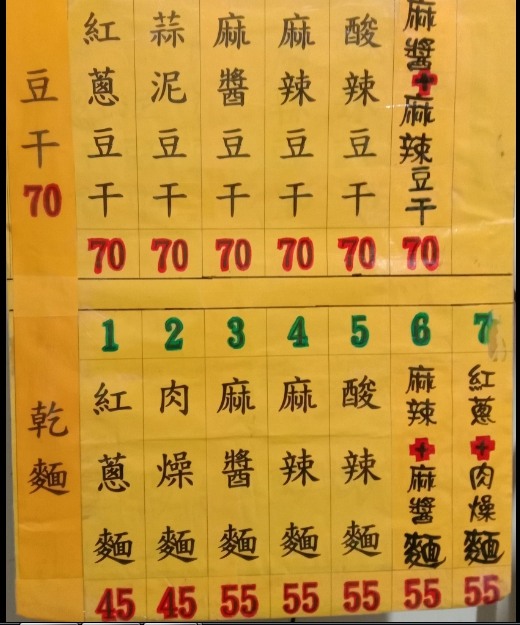 豆干70
紅蔥豆干 70
蒜泥豆干 70
麻醬豆干 70
麻辣豆干 70
酸辣豆干 70
麻醬+麻辣豆干 70
乾麵
1 紅蔥麵 45
2 肉燥麵 45
3 麻醬麵 55
4 麻辣麵 55
5 酸辣麵 55
6 麻辣+麻醬麵 55
7 紅蔥+肉燥麵 55